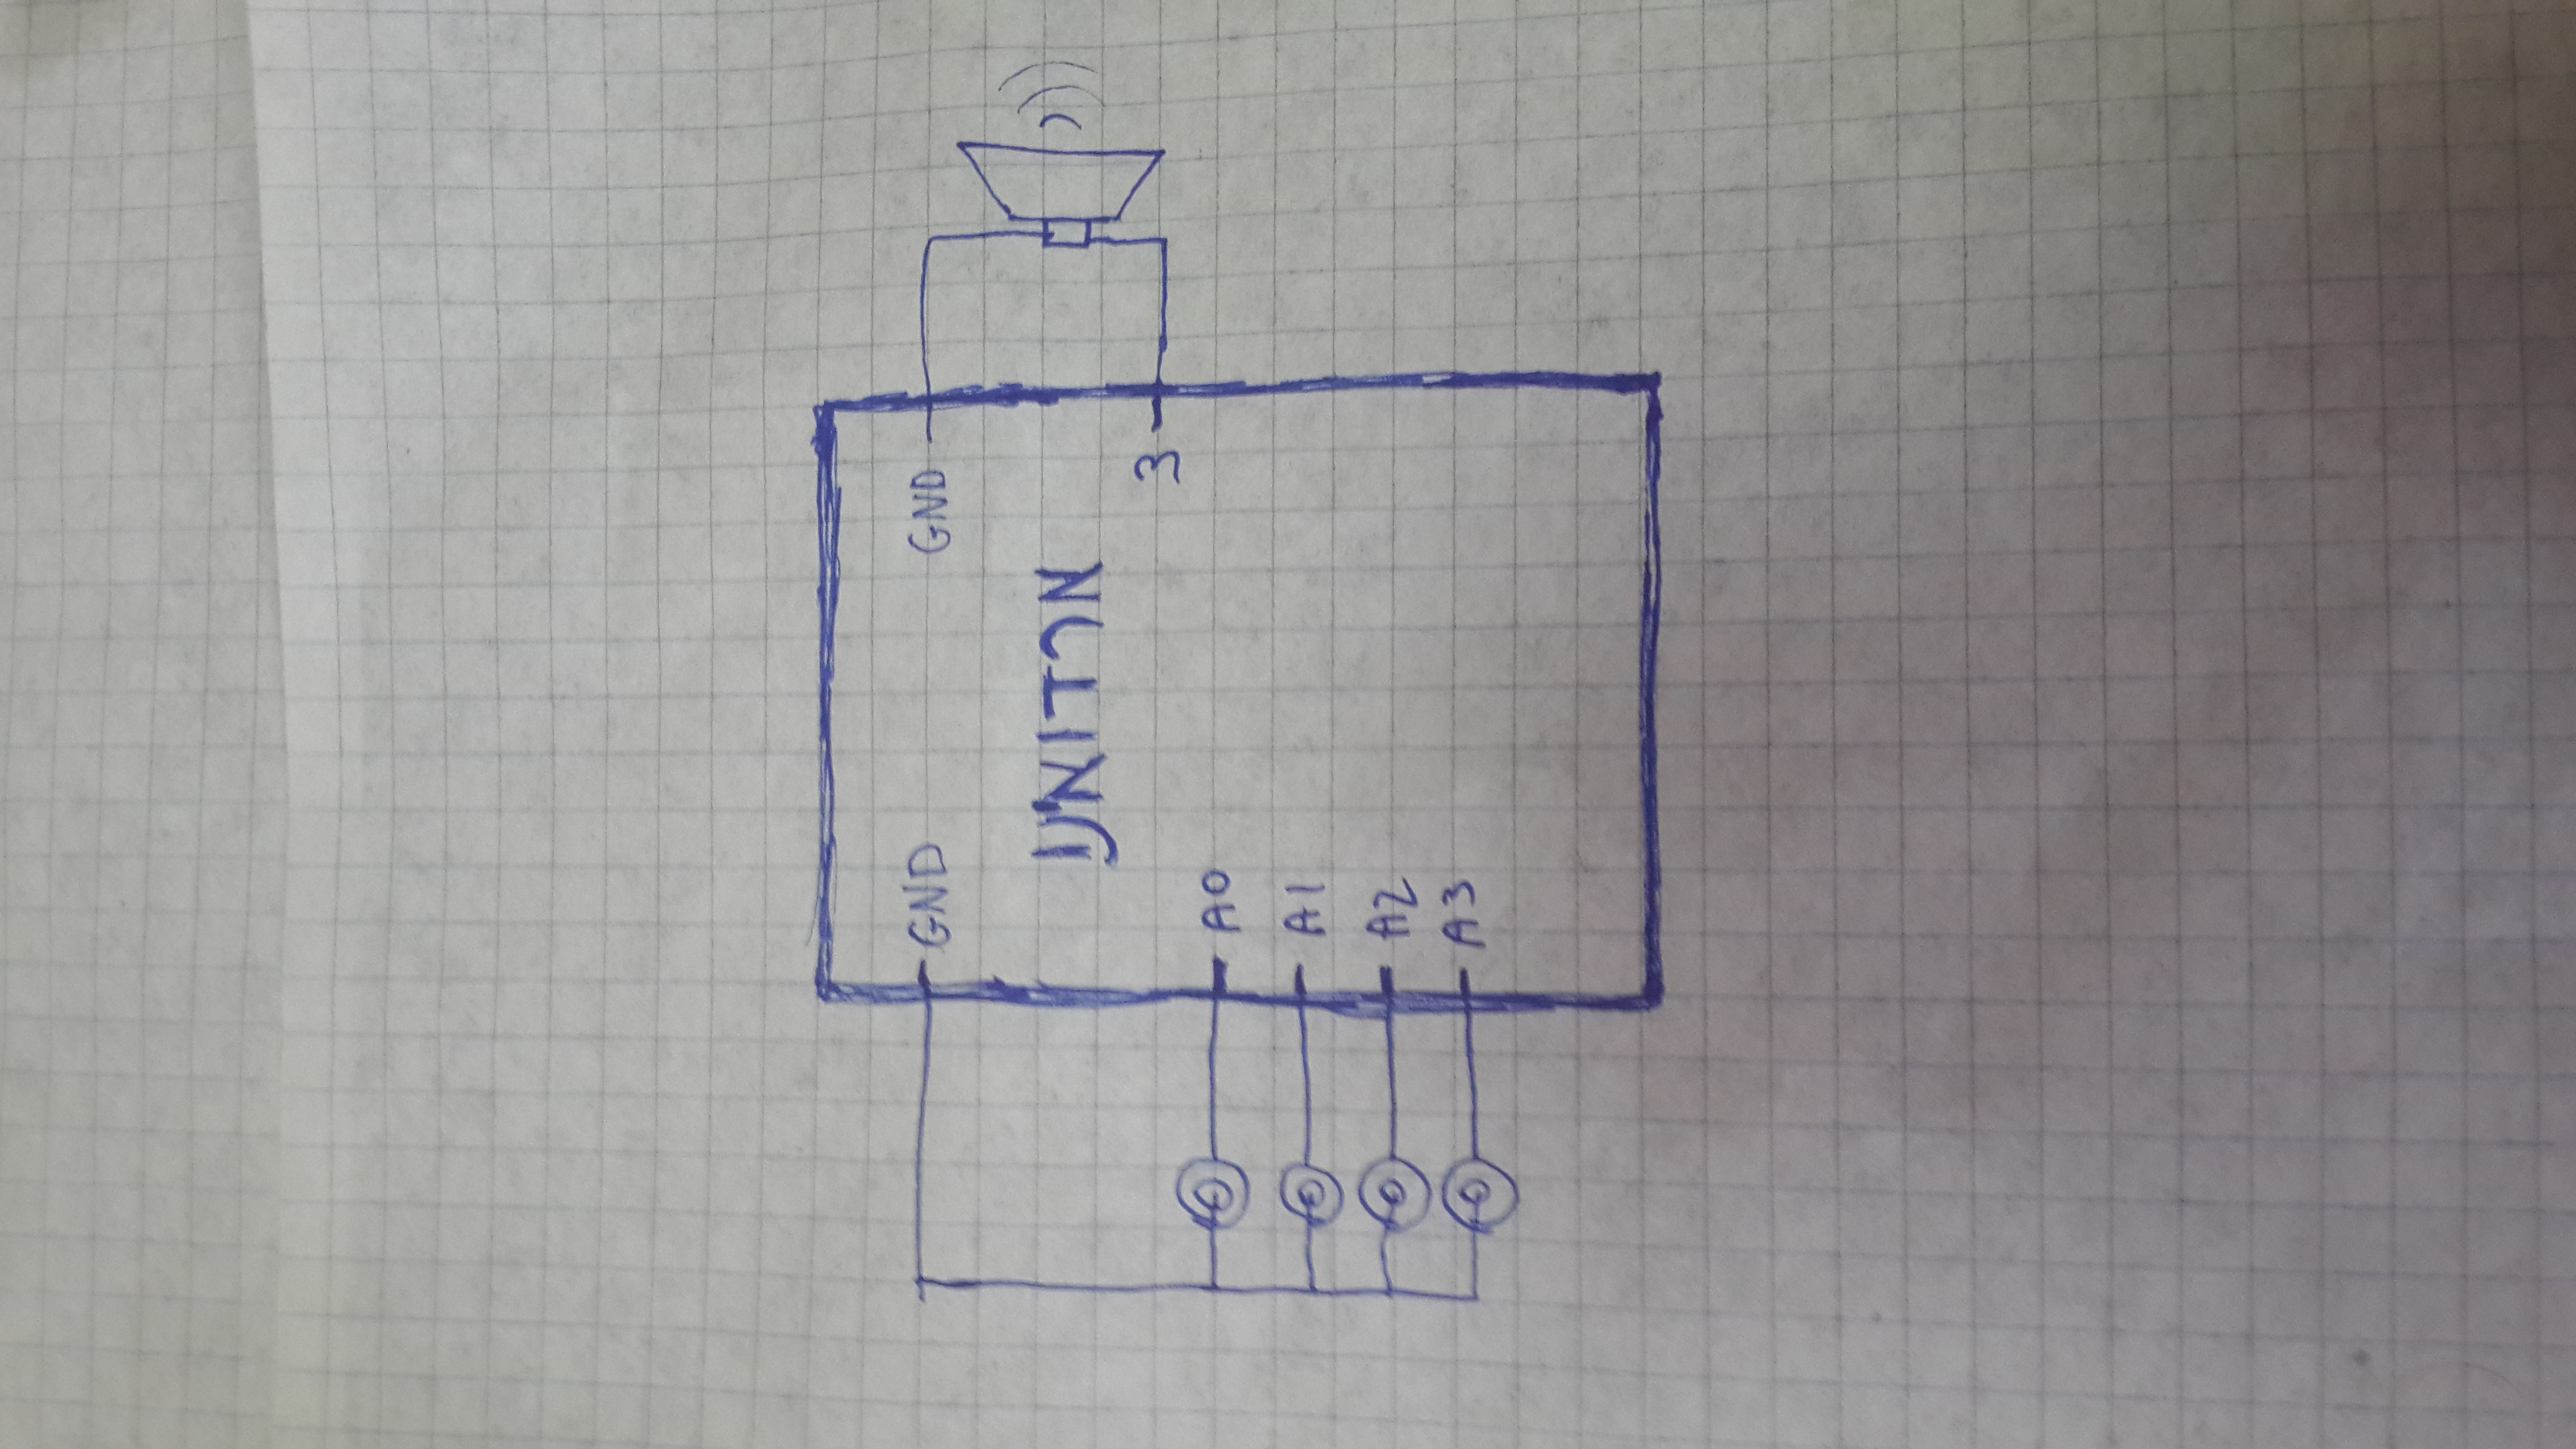 GND GND
ארדואינו
3
A0
A1
A2
A3